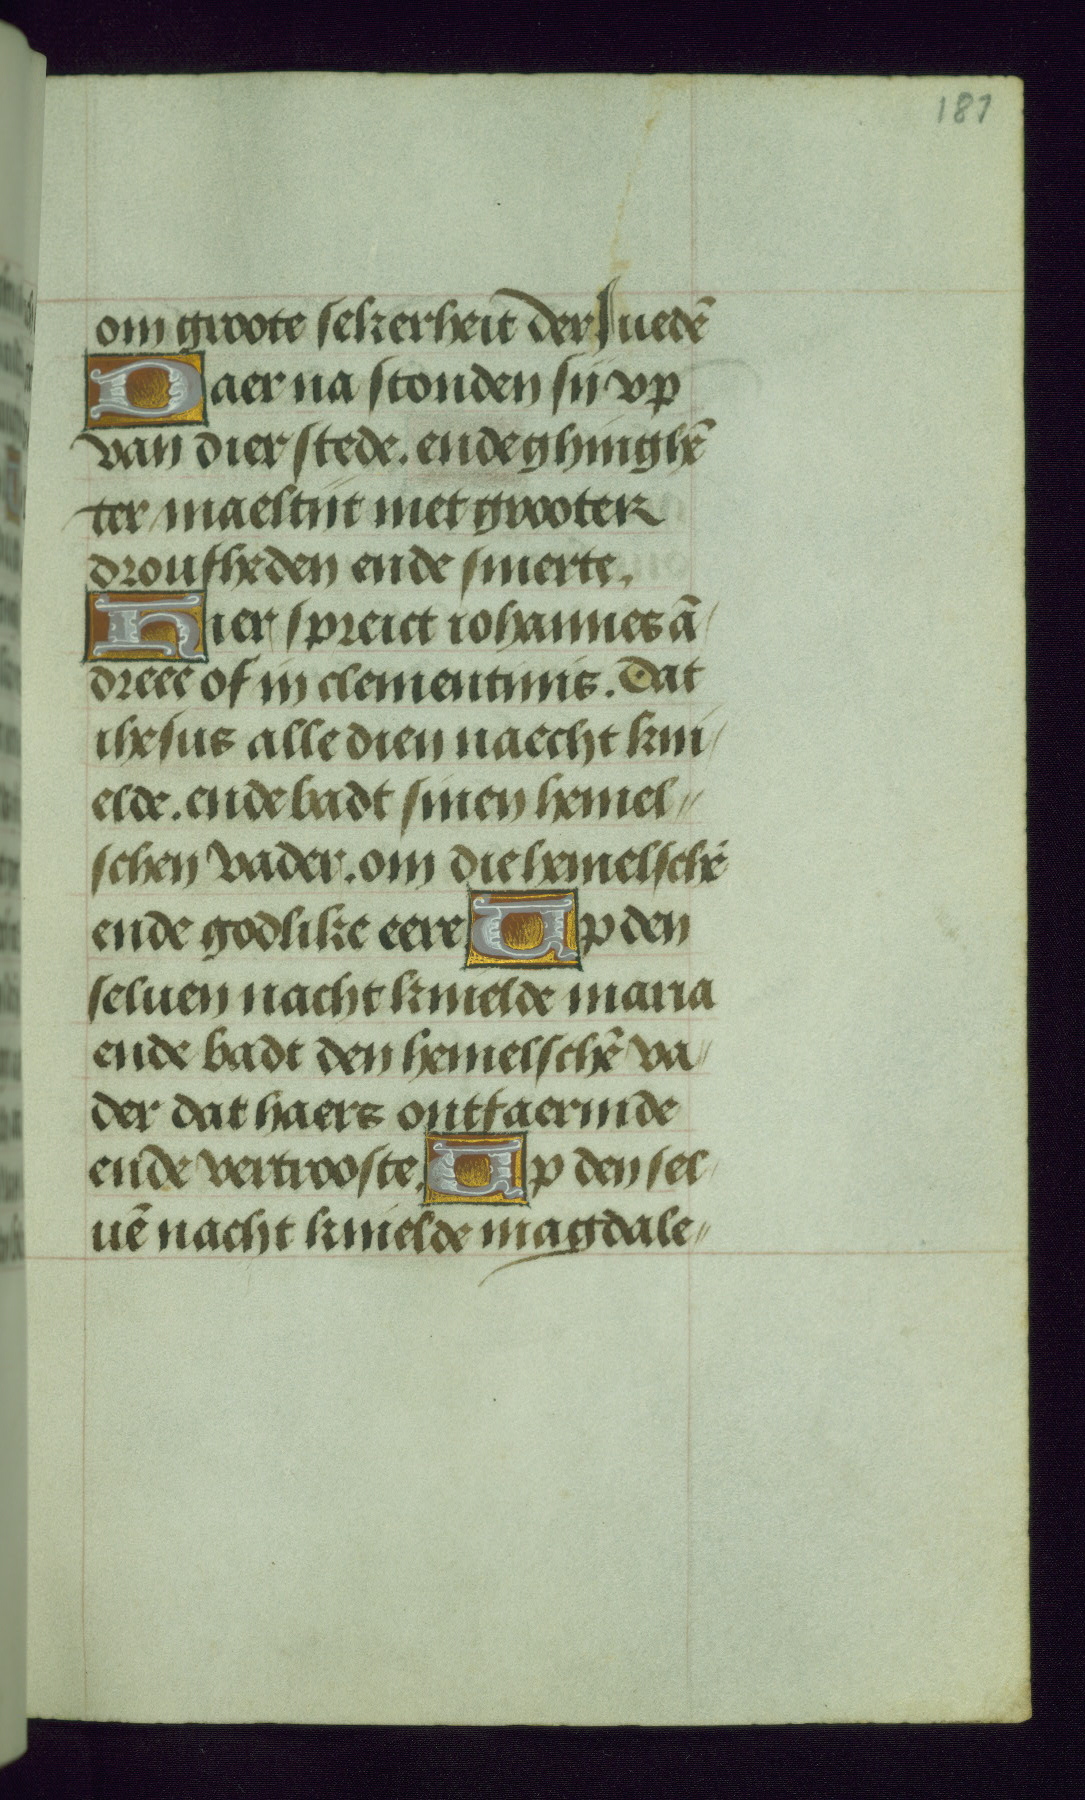 187
om groote sekerheit der Iuedē
Daer na stonden sij vp
van dier stede. ende ghinghē
ter maeltijt met grooter
droufheden ende smerte.
Hier spreict iohannes ā
dreee of in clementinis. Dat
ihesus alle dien naecht kni
elde. ende badt sinen hemel
schen vader. om die hemelschē
ende godlike eere Vp den
seluen nacht knielde maria
ende badt den hemelschē va
der dat haers ontfaermde
ende vertrooste. Vp den sel
uē nacht knielde magdale